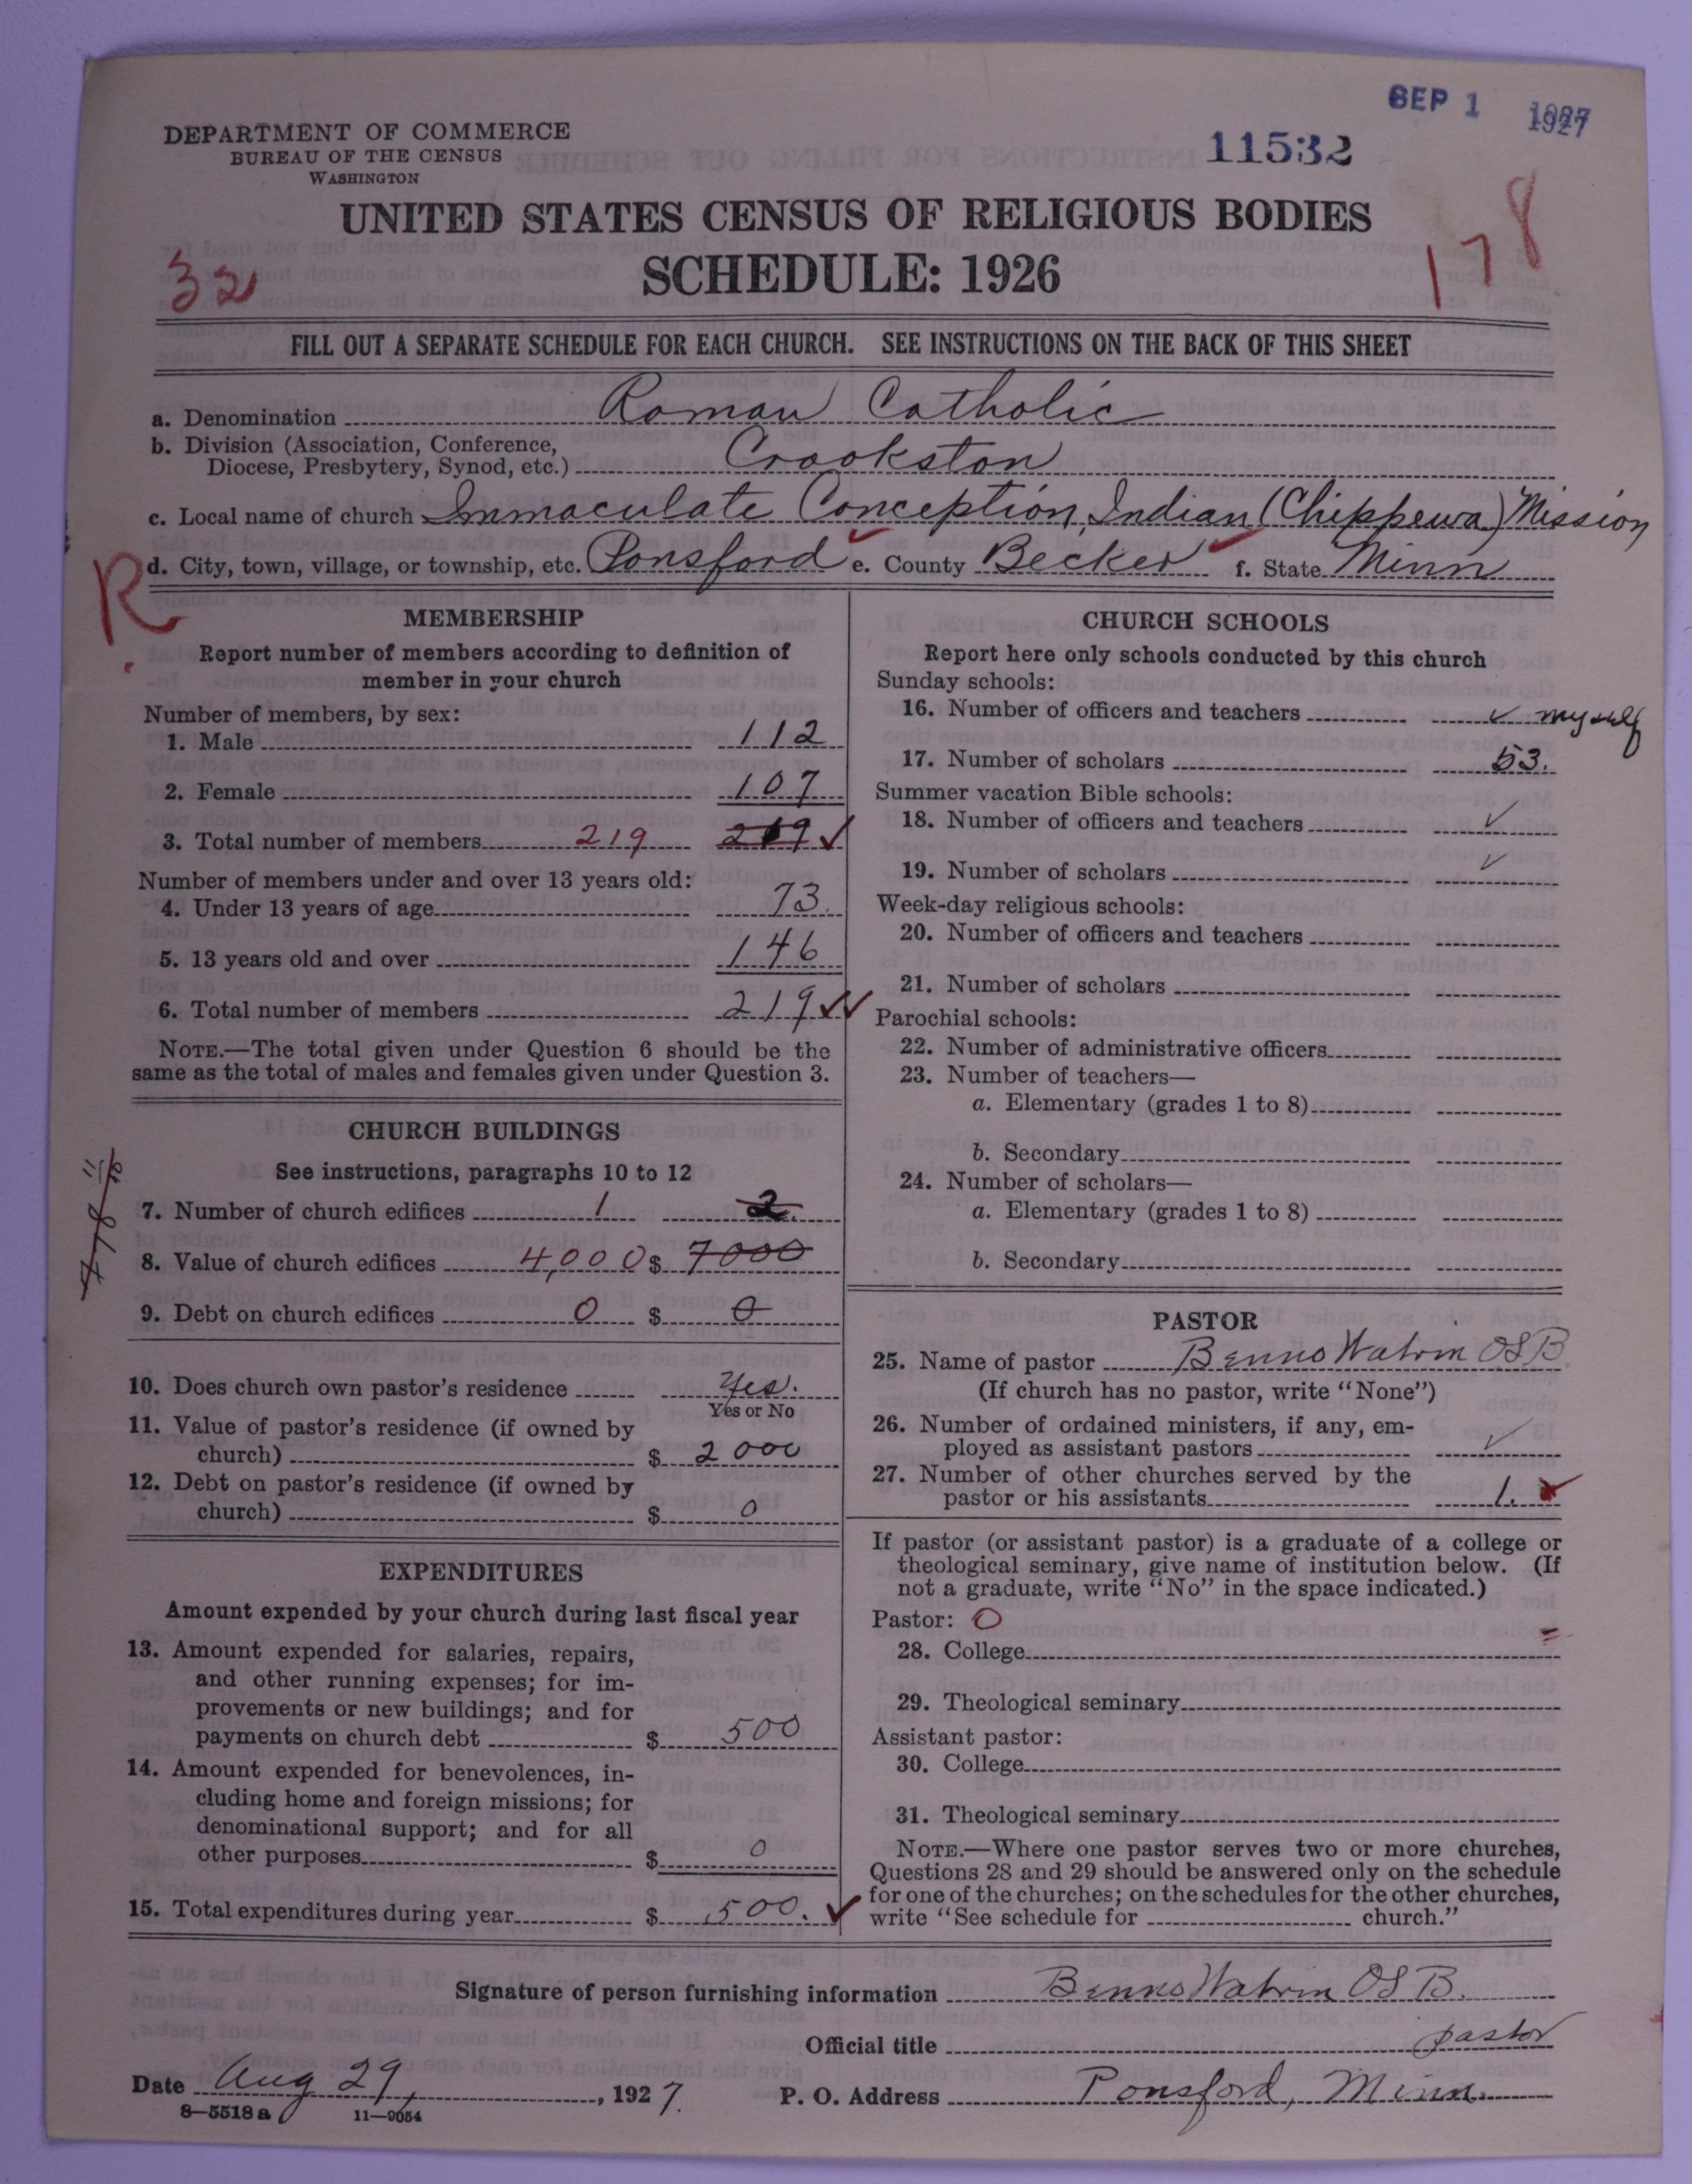 SEP 1 1927
DEPARTMENT OF COMMERCE
BUREAU OF THE CENSUS
WASHINGTON
11532
UNITED STATES CENSUS OF RELIGIOUS BODIES
SCHEDULE: 1926
32
178
FILL OUT A SEPARATE SCHEDULE FOR EACH CHURCH. SEE INSTRUCTIONS ON THE BACK OF THIS SHEET
a. Denomination Roman Catholic
b. Division (Association, Conference,
Diocese, Presbytery, Synod, etc.) Crookston
c. Local name of church Immaculate Conception, Indian (Chippewa) Mission
R
d. City, town, village, or township, etc. Ponsford e. County Becker f. State Minn
MEMBERSHIP
Report number of members according to definition of
member in your church
Number of members, by sex:
1. Male 112
2. Female 107
3. Total number of members 219 219
Number of members under and over 13 years old:
4. Under 13 years of age 73
5. 13 years old and over 146
6. Total number of members 219
NOTE.—The total given under Question 6 should be the
same as the total of males and females given under Question 3.
CHURCH BUILDINGS
See instructions, paragraphs 10 to 12
7. Number of church edifices 1 2.
8. Value of church edifices 4,000 $ 7000
9. Debt on church edifices 0 $ 0
10. Does church own pastor's residence Yes.
Yes or No
11. Value of pastor's residence (if owned by
church) $ 2000
12. Debt on pastor's residence (if owned by
church) $ 0
EXPENDITURES
Amount expended by your church during last fiscal year
13. Amount expended for salaries, repairs,
and other running expenses; for im-
provements or new buildings; and for
payments on church debt $ 500
14. Amount expended for benevolences, in-
cluding home and foreign missions; for
denominational support; and for all
other purposes $ 0
15. Total expenditures during year $ 500.
CHURCH SCHOOLS
Report here only schools conducted by this church
Sunday schools:
16. Number of officers and teachers ✓ myself
17. Number of scholars 53.
Summer vacation Bible schools:
18. Number of officers and teachers ✓
19. Number of scholars ✓
Week-day religious schools:
20. Number of officers and teachers
21. Number of scholars
Parochial schools:
22. Number of administrative officers
23. Number of teachers—
a. Elementary (grades 1 to 8)
b. Secondary
24. Number of scholars—
a. Elementary (grades 1 to 8)
b. Secondary
PASTOR
25. Name of pastor Benno Watrin OSB
(If church has no pastor, write "None")
26. Number of ordained ministers, if any, em-
ployed as assistant pastors ✓
27. Number of other churches served by the
pastor or his assistants 1.
If pastor (or assistant pastor) is a graduate of a college or
theological seminary, give name of institution below. (If
not a graduate, write "No" in the space indicated.)
Pastor: O
28. College
29. Theological seminary
Assistant pastor:
30. College
31. Theological seminary
NOTE.—Where one pastor serves two or more churches,
Questions 28 and 29 should be answered only on the schedule
for one of the churches; on the schedules for the other churches,
write "See schedule for church."
Signature of person furnishing information Benno Watrin OSB.
Official title pastor
Date Aug 29, 1927. P. O. Address Ponsford, Minn.
8—5518a 11—9054